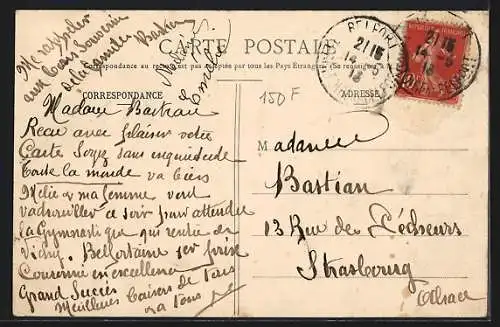 Me rappeler
aux bons Souvenirs
de la famille Bastian
CARTE POSTALE
Correspondance au recto n'est pas acceptée par tous les Pays Étrangers (Se renseigner
CORRESPONDANCE
ADRESSE
150 F
BELFORT
21/15
14-5
13
RÉPUBLIQUE FRANÇAISE
Madame Bastian
Reçu avec plaisir votre
Carte Soyez sans inquiétude
Toute la monde va bien
Mélie & ma femme vont
vadrouiller ce soir pour attendre
la Gymnastique qui rentre de
Vichy. Belfortaine 1er prise
Couronne en excellence
Grand Succès
Meilleurs baisers de tous
à tous
Madame
Bastian
13 Rue des Pêcheurs
Strasbourg
Alsace